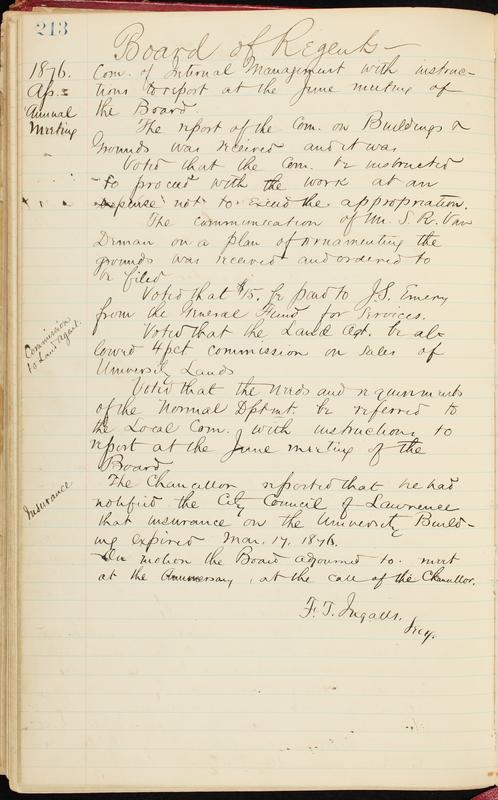 213
Board of Regents
1876.
Ap. 5
Annual
Meeting
Com. of Internal Management with instruc-
tions to report at the June meeting of
the Board
The report of the Com. on Buildings &
Grounds was received and it was
Voted that the Com. be instructed
to proceed with the work at an
expense not to exceed the appropriation.
The communication of Mr. S. R. Van
Deman on a plan of ornamenting the
grounds was received and ordered to
be filed
Voted that $15. be paid to J.S. Emery
from the General Fund for services.
Commission
to Land Agent.
Voted that the Land Agt. be al-
lowed 4 pct commission on sales of
University Lands
Voted that the needs and requirements
of the Normal Dptmt. be referred to
the Local Com. with instructions to
report at the June meeting of the
Board
Insurance
The Chancellor reported that he had
notified the City Council of Lawrence
that insurance on the University Build-
ing expired Mar. 17, 1876.
On motion the Board adjourned to meet
at the Anniversary, at the call of the Chancellor.
F. T. Ingalls.
Secy.